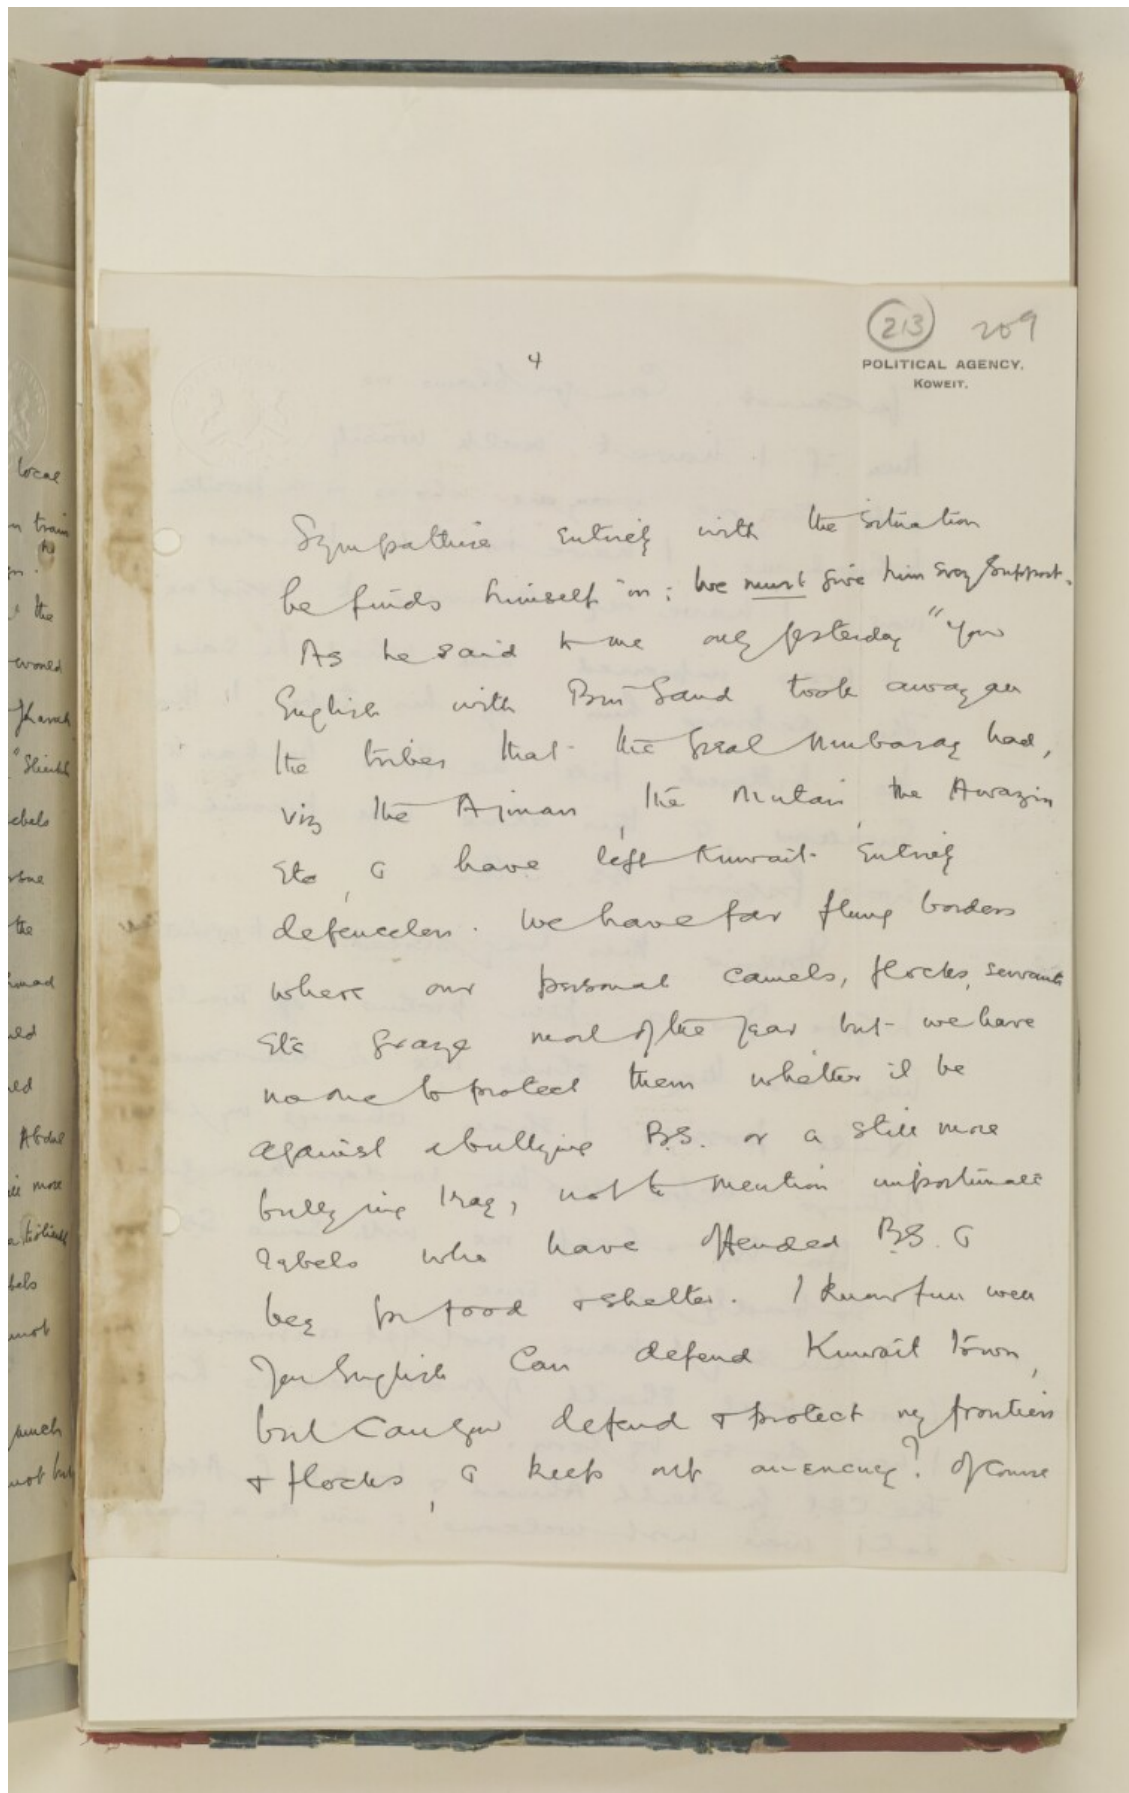 213 209
4
POLITICAL AGENCY.
KOWEIT.
Sympathise entirely with the situation
he finds himself in; we must give him every support.
As he said to me only yesterday "You
English with Bin Saud took away all
the tribes that the great Mubarak had,
viz the Ajman, the Mutair, the Awazin
etc, & have left Kuwait entirely
defenceless. We have far flung borders
where our personal camels, flocks, servants
etc graze most of the year but we have
no one to protect them whether it be
against a bullying B.S. or a still more
bullying Iraq, not to mention importunate
rebels who have offended B.S. &
beg for food & shelter. I know full well
you English can defend Kuwait town,
but can you defend & protect my frontiers
& flocks, & keep out an enemy? Of course
local
train
the
would
"Sheikh
rebels
the
Abdul
more
rebels
much
not but